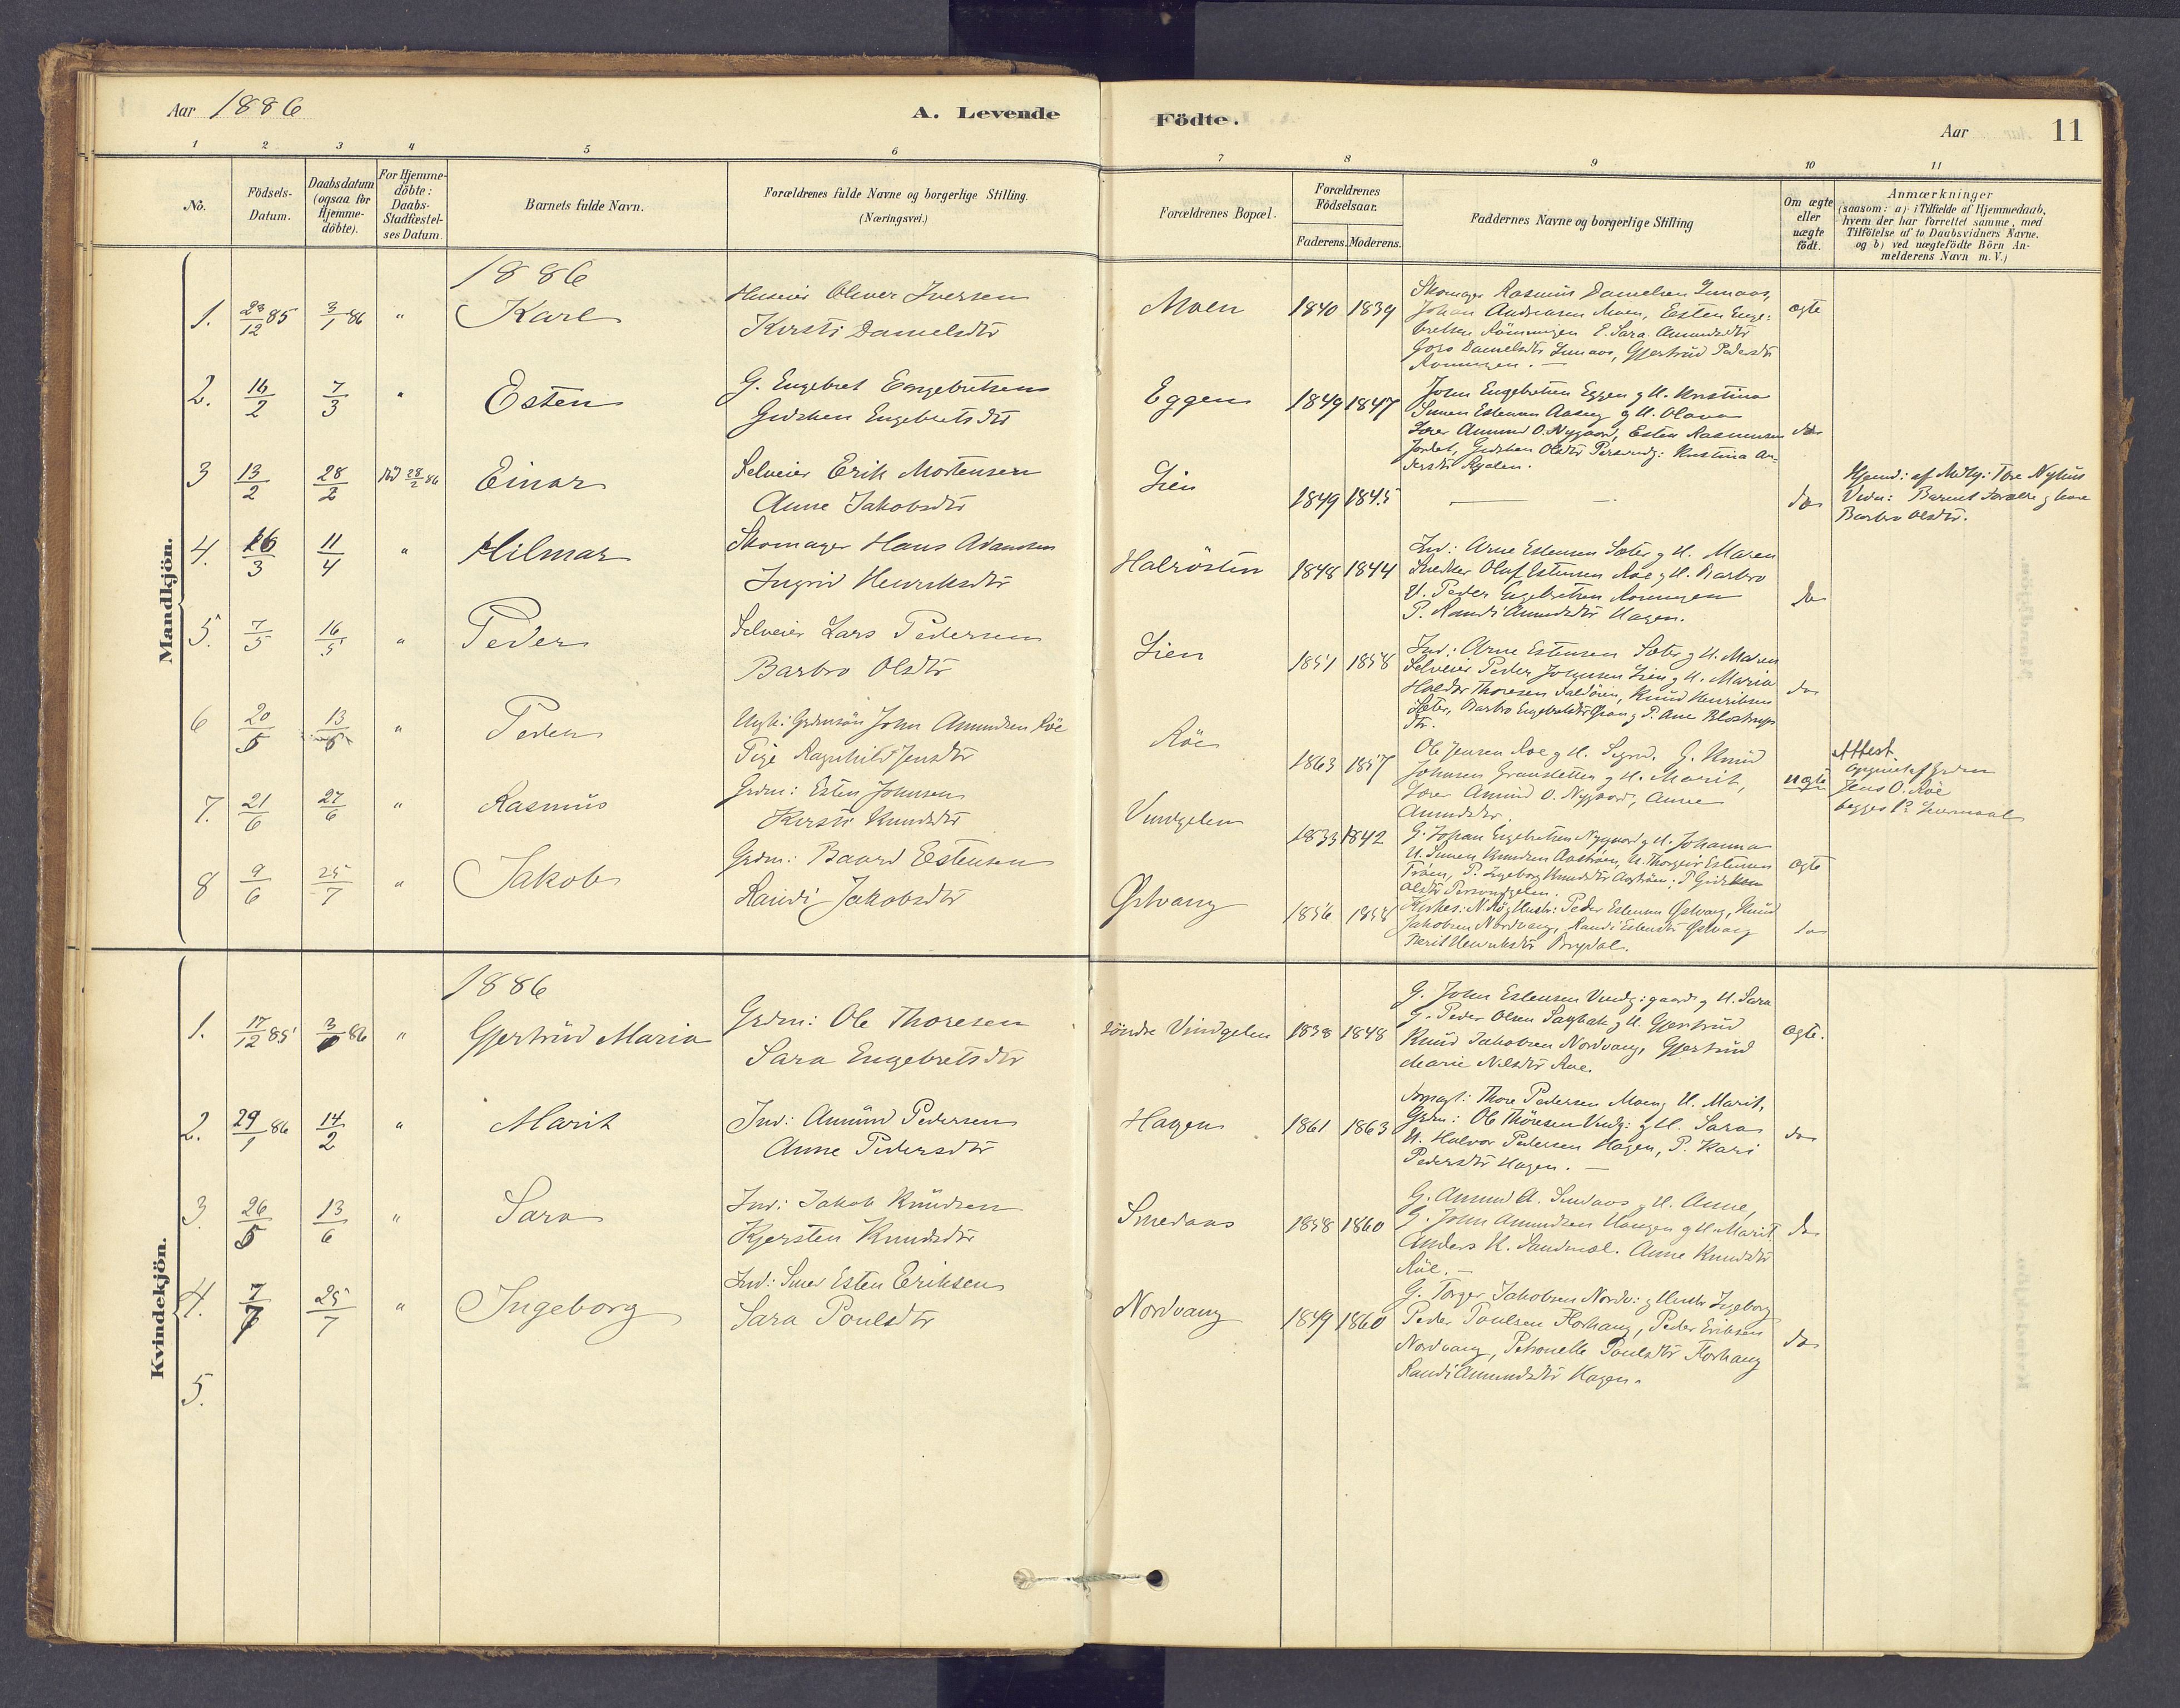 Aar 1886
A. Levende
Födte.
Aar
11
1
2
3
4
5
6
7
8
9
10
11
No.
Födsels-
Datum.
Daabsdatum
(ogsaa for
Hjemme-
döbte).
For Hjemme-
döbte:
Daabs-
Stadfæstel-
ses Datum.
Barnets fulde Navn.
Forældrenes fulde Navne og borgerlige Stilling.
(Næringsvei.)
Forældrenes Bopæl.
Forældrenes
Födselsaar.
Faderens.
Moderens.
Faddernes Navne og borgerlige Stilling
Om ægte
eller
uægte
födt.
Anmærkninger
(saasom: a) i Tilfælde af Hjemmedaab,
hvem der har forrettet samme, med
Tilföielse af to Daabsvidners Navne.
og b) ved uægtefödte Börn An-
melderens Navn m.V.)
Mandkjön.
1886
1. 23/12 85 3/1 86 " Karl
Oliver Iversen
Kirsti Danielsdtr
Moen 1840 1839
Skomager Rasmus Danielsen
Johan Andreasen Moen, Esten Enge:
bretsen Rönningen E. Sara Amundsdtr
Goro Danielsdtr Gjertrud Pedersdtr
Ronningen. —
ægte
2. 16/2 7/3 " Esten
G. Engebret Engebretsen
Gidsken Engebretsdtr
Eggen 1849 1847
John Engebretsen Eggen g H. Kristina
Simen Estensen Aaseng g H. Olava
Lærer Amund O. Nygaard, Esten Rasmussen
Gidsken Olsdtr Kristina An-
dersdtr
do
3 13/2 28/2 28/2 86 Einar
Selveier Erik Mortensen
Anne Jakobsdtr
Lien 1849 1845
—
do
Hjemd: af Tore Nyhus
Vidn: Barnets Forældre g
Barbro Olsdtr.
4. 16/3 11/4 " Hilmar
Skomager Hans Adamsen
Ingrid Henriksdtr
Halvösten 1848 1844
Ind: Arne Estensen Sæter g H. Maren
Snedker Oluf Estensen Röe g H. Barbro
U. Peder Engebretsen Ronningen
P. Randi Amundsdtr Hagen.
do
5. 7/5 16/5 " Peder
Selveier Lars Pedersen
Barbro Olsdtr
Lien 1851 1858
Ind: Arne Estensen Sæter g H. Maren
Selveier Peder Johnsen Lien g H. Maria
Thoresen Knud Henriksen
Sæter, Barbro Engebretsdtr P. Ane
dtr.
do
6 20/5 13/6 " Peder
Ungk: Grdmsön John Amundsen Röe
Pige Ragnhild Jensdtr
Röe 1863 1857
Ole Jensen Roe g H. Sigrid. G. Knud
Johnsen Gransletten g H. Marit,
Lærer Amund O. Nygaard, Anne
Amundsdtr.
uægte
Attest
af Grdm
Jens O. Röe
begges 1ste Leiermaal
7. 21/6 27/6 " Rasmus
Grdm: Esten Johnsen
Kirsti Knudsdtr
Vindgelen 1833 1842
G. Johan Engebretsen Nygaard g H. Johanna
U. Simen Knudsen Aaströen, U. Thorgeir Estensen
Tröen, P. Ingeborg Knudsdtr Aaströen; P Gidsken
Olsdtr
ægte
8 9/6 25/7 " Jakob
Grdm: Baard Estensen
Randi Jakobsdtr
Östvang 1856 1858
Kirkes: N. Röe g Hustr: Peder Estensen Östvang, Knud
Jakobsen Nordvang, Randi Estensdtr Östvang
Berit Henriksdtr Brydal.
do
Kvindekjön.
1886
1. 17/12 85 3/1 86 " Gjertrud Maria
Grdm: Ole Thoresen
Sara Engebretsdtr
söndre Vindgelen 1838 1848
G. John Estensen Vindg: gaard g H. Sara
G. Peder Olsen g H. Gjertrud
Knud Jakobsen Nordvang, Gjertrud
Marie Nilsdtr Röe.
ægte.
2. 29/1 86 14/2 " Marit
Ind: Amund Pedersen
Anne Pedersdtr
Hagen 1861 1863
Thore Pedersen Moen g H. Marit,
Grdm: Ole Thoresen Vindg: g H. Sara
U. Halvor Pedersen Hagen, P. Kari
Pedersdtr Hagen. —
do
3. 26/5 13/6 " Sara
Ind: Jakob Knudsen
Kjersten Knudsdtr
Smedaas 1858 1860
G. Amund A. Smedaas g H. Anne,
G. John Amundsen Haugen g H Marit
Anders K. Sandmæl. Anne Knudsdtr
Röe. —
do
4. 7/7 25/7 " Ingeborg
Ind: Smed Esten Eriksen
Sara Poulsdtr
Nordvang 1849 1860
G. Torger Jakobsen Nordv: g Hustr Ingeborg
Peder Poulsen Horhaug, Peder Eriksen
Nordvang, Petronelle Poulsdtr Horhaug
Randi Amundsdtr Hagen.
do
5.